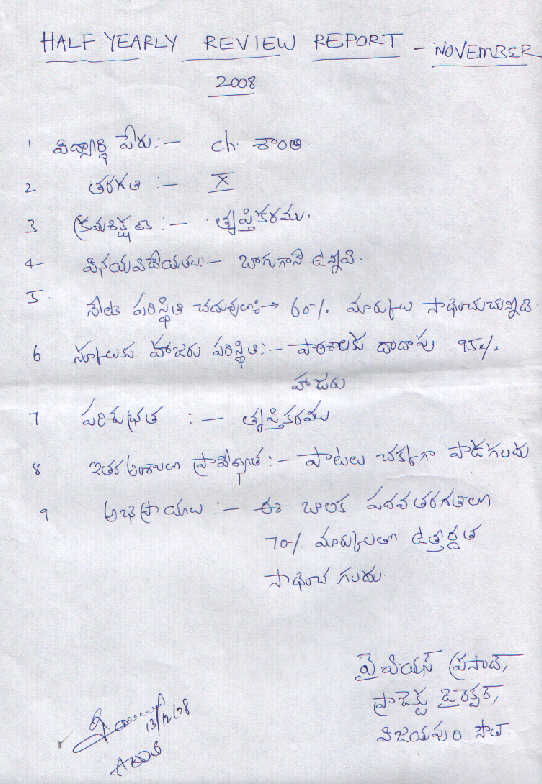 HALF YEARLY REVIEW REPORT - NOVEMBER
2008
1 విద్యార్థి పేరు:- ch. శాంతి
2. తరగతి :- X
3 క్రమశిక్షణ :- తృప్తికరము.
4- వినయవిధేయతలు:- బాగుగానే ఉన్నవి.
5. నేటి పరిస్థితి చదువులో:-> 60% మార్కులు సాధించుచున్నది
6 స్కూలుకు హాజరు పరిస్థితి:- పాఠశాలకు దాదాపు 95%
హాజరు
7 పరిశుభ్రత :- తృప్తికరము
8 ఇతర అంశాలలో ప్రావీణ్యత:- పాటలు చక్కగా పాడగలదు
9 అభిప్రాయం :- ఈ బాలిక పదవతరగతిలో
70% మార్కులతో ఉత్తీర్ణత
సాధించ గలదు
వై. చియస్ ప్రసాద్,
ప్రాజెక్టు డైరెక్టర్,
విజయపురి సౌత్
13/12/08